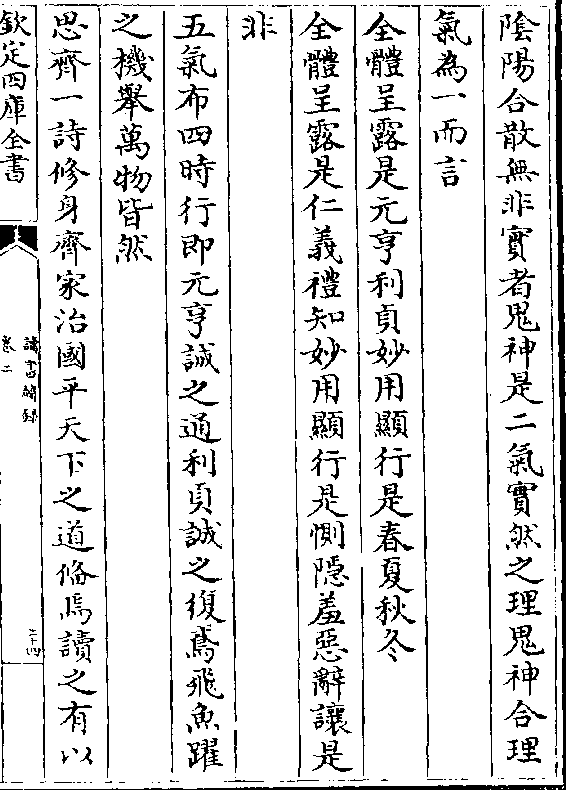 陰陽合散無非實者鬼神是二氣實然之理鬼神合理
氣為一而言
全體呈露是元亨利貞妙用顯行是春夏秋冬
全體呈露是仁義禮知妙用顯行是惻隠羞惡辭讓是
非
五氣布四時行即元亨誠之通利貞誠之復鳶飛魚躍
之機舉萬物皆然
思齊一詩修身齊家治國平天下之道俻焉讀之有以
欽定四庫全書
讀書續録
卷二
二十四